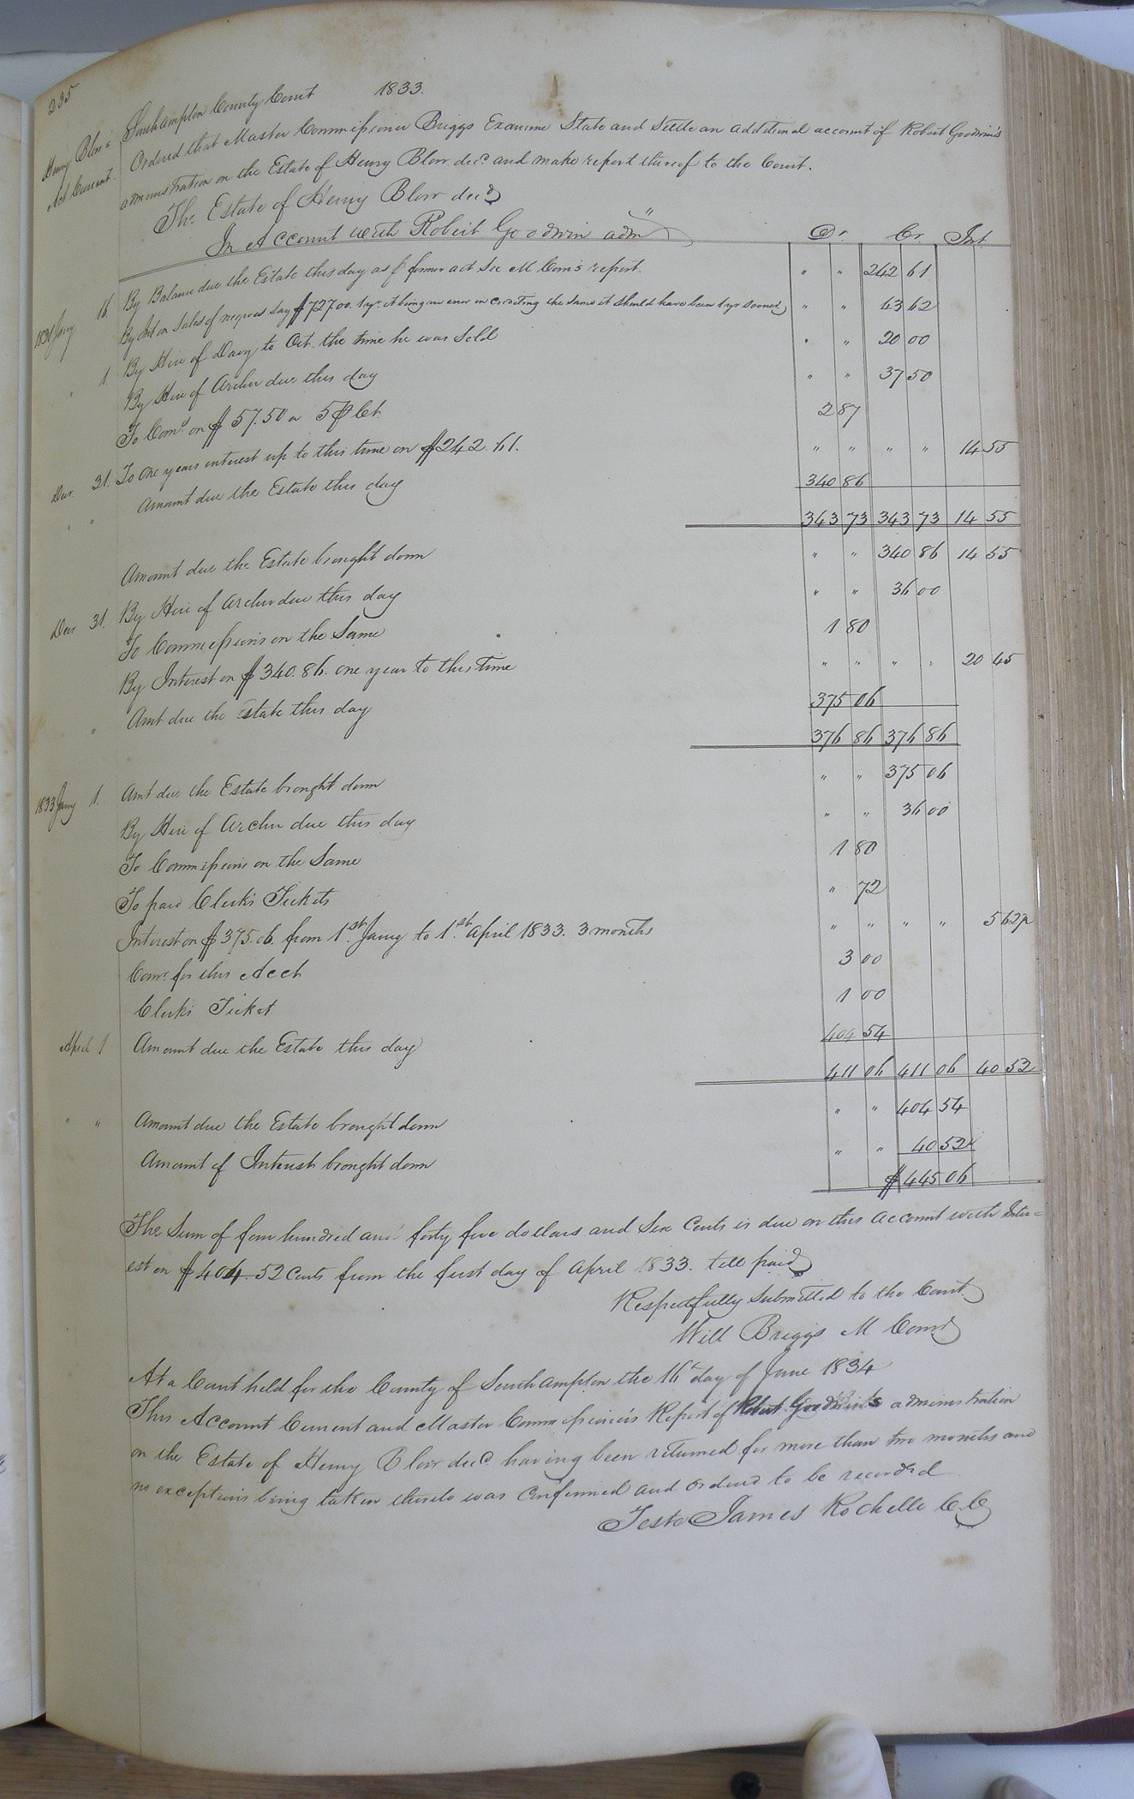 235
Southampton County Court 1833.
Henry Blow's
Act Current.
Ordered that Master Commissioner Briggs Examine State and Settle an additional account of Robert Goodwin's
administration on the Estate of Henry Blow decd and make report thereof to the Court.
The Estate of Henry Blow decd
In Account with Robert Goodwin adm"
Dr. Cr Int
By Balance due the Estate this day as pr former act See M Com's report. " " 242 61
1831 Jany 16 By Int on Sales of negroes say $727.00. 1 yr. it being an error in crediting the same it should have been 1 yr sooner " " 43 62
" 1 By Hire of Davy to Oct. the time he was Sold " " 20 00
By Hire of Archer due this day " " 37 50
To Coms on $57.50 a 5 p Ct. 2 87
Decr 31. To one years interest up to this time on $242.61. " " " " 14 55
" " Amount due the Estate this day 340 86
343 73 343 73 14 55
Amount due the Estate brought down " " 340 86 14 55
Decr 31. By Hire of Archer due this day " " 36 00
To Commissions on the Same 1 80
By Interest on $340.86. one year to this time " " " " 20 45
" Amt due the Estate this day 375 06
376 86 376 86
1833 Jany 1. Amt due the Estate brought down " " 375 06
By Hire of Archer due this day " " 36 00
To Commissions on the Same 1 80
To paid Clerks Tickets " 72
Interest on $375.06. from 1st Jany to 1st April 1833. 3 months " " " " 5 62½
Comr for this Acct 3 00
Clerks Ticket 1 00
April 1 Amount due the Estate this day 404 54
411 06 411 06 40 52
" " Amount due the Estate brought down " " 404 54
Amount of Interest brought down " " 40 52½
$445 06
The Sum of four hundred and forty five dollars and Six Cents is due on this account with Inter=
est on $404.52 Cents from the first day of April 1833. till paid
Respectfully Submitted to the Court
Will Briggs M Comr
At a Court held for the County of Southampton the 16th day of June 1834
This Account Current and Master Commissioner's Report of Robert Goodwin's administration
on the Estate of Henry Blow decd having been returned for more than two months and
no exceptions being taken thereto was Confirmed and ordered to be recorded
Teste James Rochelle C.C.